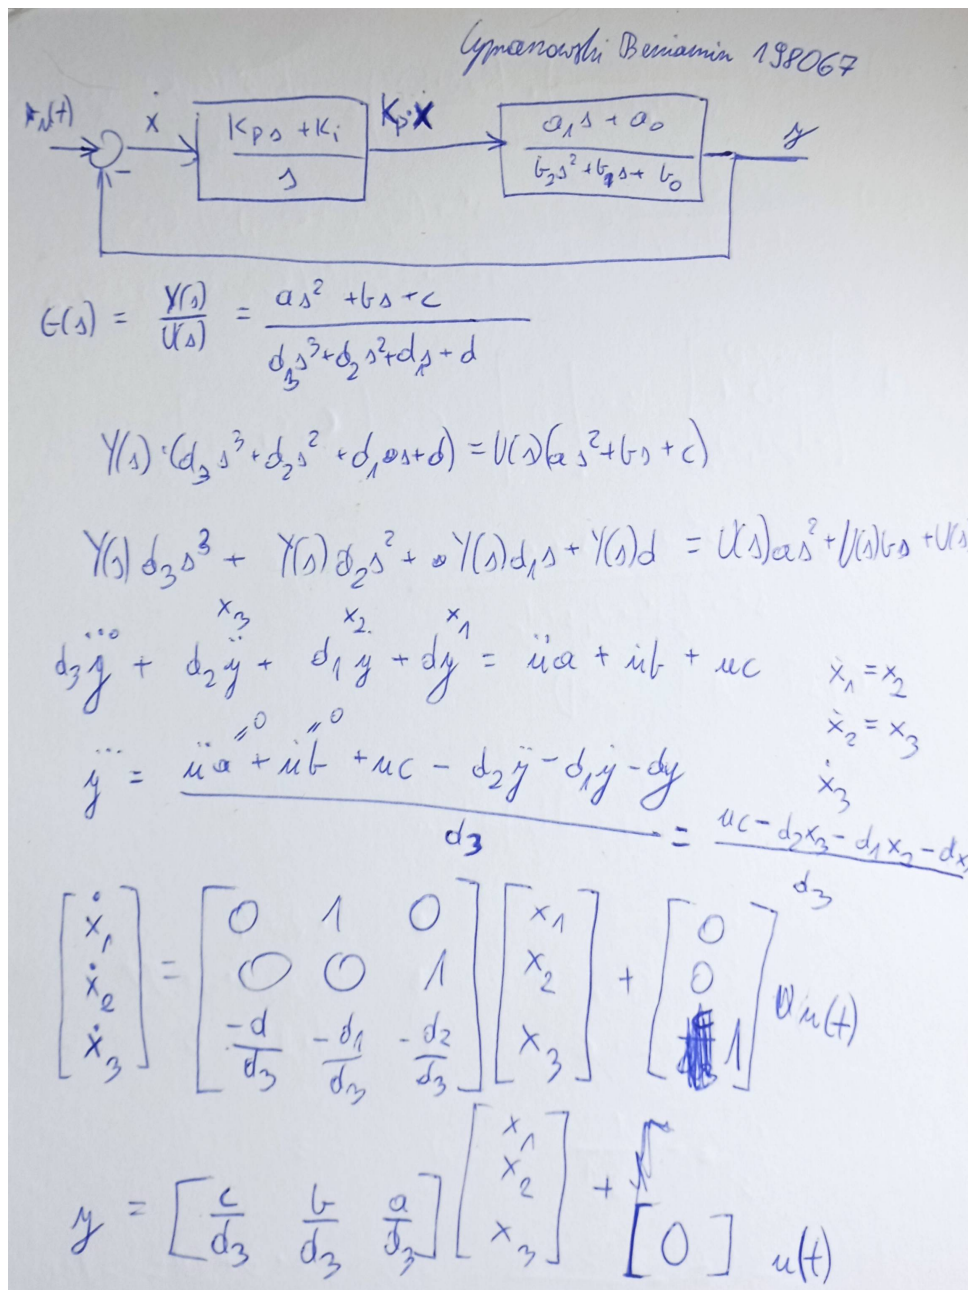 Beniamin 198067
u(t) ẋ Kp s + Ki / s Kp·X a₁s + a₀ / b₂s² + b₁s + b₀ y
−
G(s) = Y(s)/U(s) = as² + bs + c / d₃s³ + d₂s² + d₁s + d
Y(s)·(d₃s³ + d₂s² + d₁s + d) = U(s)(as² + bs + c)
Y(s)d₃s³ + Y(s)d₂s² + Y(s)d₁s + Y(s)d = U(s)as² + U(s)bs + U(s
x₃ x₂ x₁
d₃y⃛ + d₂ÿ + d₁y + dy = üa + u̇b + uc
ẋ₁ = x₂
ẋ₂ = x₃
ẋ₃
=0 =0
y⃛ = üa + u̇b + uc − d₂ÿ − d₁ẏ − dy / d₃ = uc − d₂x₃ − d₁x₂ − dx₁ / d₃
[ẋ₁ ẋ₂ ẋ₃] = [0 1 0 0 0 1 −d/d₃ −d₁/d₃ −d₂/d₃] [x₁ x₂ x₃] + [0 0 1] u(t)
y = [c/d₃ b/d₃ a/d₃] [x₁ x₂ x₃] + [0] u(t)